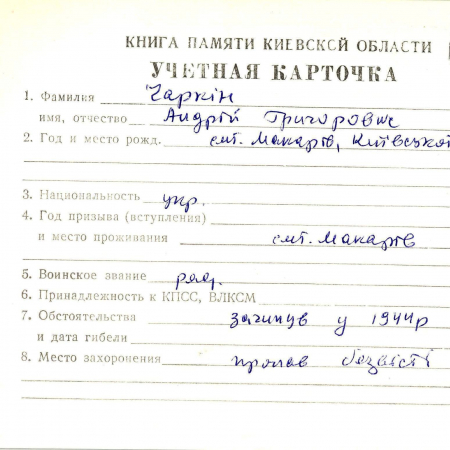 КНИГА ПАМЯТИ КИЕВСКОЙ ОБЛАСТИ
УЧЕТНАЯ КАРТОЧКА
1. Фамилия Чаркін
имя, отчество Андрій Григорович
2. Год и место рожд. смт. Макарів, Київської
3. Национальность укр.
4. Год призыва (вступления)
и место проживания смт. Макарів
5. Воинское звание ряд.
6. Принадлежность к КПСС, ВЛКСМ
7. Обстоятельства загинув у 1944р
и дата гибели
8. Место захоронения пропав безвісті